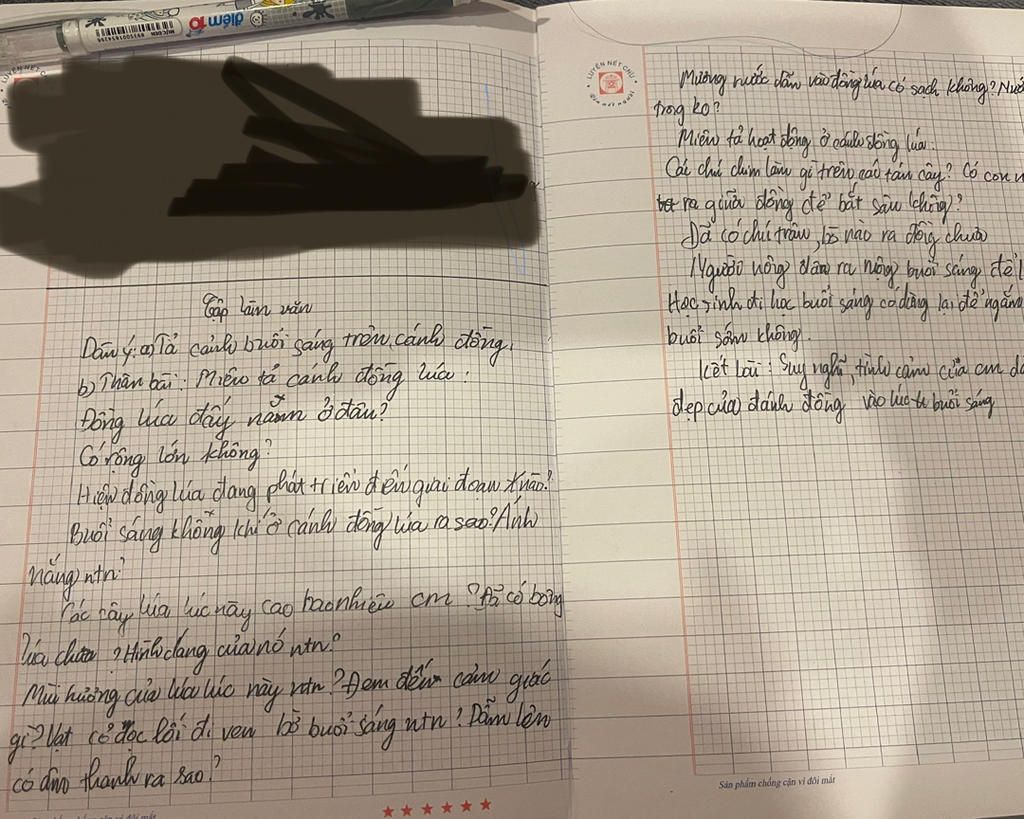 điểm 10
LUYỆN NÉT CHỮ
Tập làm văn
Dàn ý: a) Tả cảnh buổi sáng trên cánh đồng.
b) Thân bài: Miêu tả cánh đồng lúa:
Đồng lúa đấy nằm ở đâu?
Có rộng lớn không?
Hiện đồng lúa đang phát triển đến giai đoạn nào?
Buổi sáng không khí ở cánh đồng lúa ra sao? Ánh
nắng ntn?
Các cây lúa lúc này cao bao nhiêu cm? Đã có bông
lúa chưa? Hình dáng của nó ntn?
Mùi hương của lúa lúc này ntn? Đem đến cảm giác
gì? Vạt cỏ dọc lối đi ven bờ buổi sáng ntn? Dẫm lên
có âm thanh ra sao?
LUYỆN NÉT CHỮ
Mương nước dẫn vào đồng lúa có sạch không? Nướ
trong ko?
Miêu tả hoạt động ở cánh đồng lúa.
Các chú chim làm gì trên các tán cây? Có con n
ra giữa đồng để bắt sâu không?
Đã có chú trâu, bò nào ra đồng chưa
Người nông dân ra nông buổi sáng để l
Học sinh đi học buổi sáng có dừng lại để ngắm
buổi sớm không.
Kết bài: Suy nghĩ, tình cảm của em
đẹp của đánh đồng vào lúc buổi sáng
Sản phẩm chống cận vì đôi mắt